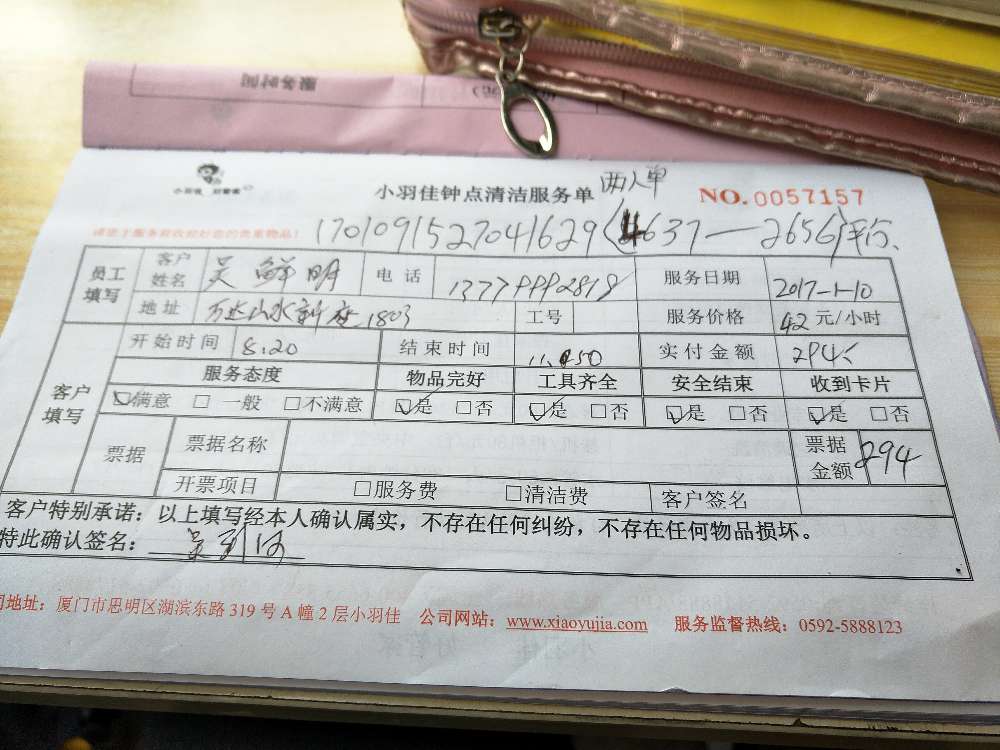 服务时间
小羽佳 好管家
小羽佳钟点清洁服务单 两人单 NO. 0057157
1701091527041629(4637—2656)平行、
员工填写 客户姓名 吴鲜明 电话 13779992818 服务日期 2017-1-10
地址 万达山水新座1803 工号 服务价格 42元/小时
客户填写 开始时间 8:20 结束时间 11:50 实付金额 294
服务态度 物品完好 工具齐全 安全结束 收到卡片
☑满意 □一般 □不满意 ☑是 □否 ☑是 □否 ☑是 □否 ☑是 □否
票据 票据名称 票据金额 294
开票项目 □服务费 □清洁费 客户签名
客户特别承诺：以上填写经本人确认属实，不存在任何纠纷，不存在任何物品损坏。
特此确认签名：
司地址：厦门市思明区湖滨东路 319 号 A 幢 2 层小羽佳 公司网站：www.xiaoyujia.com 服务监督热线：0592-5888123